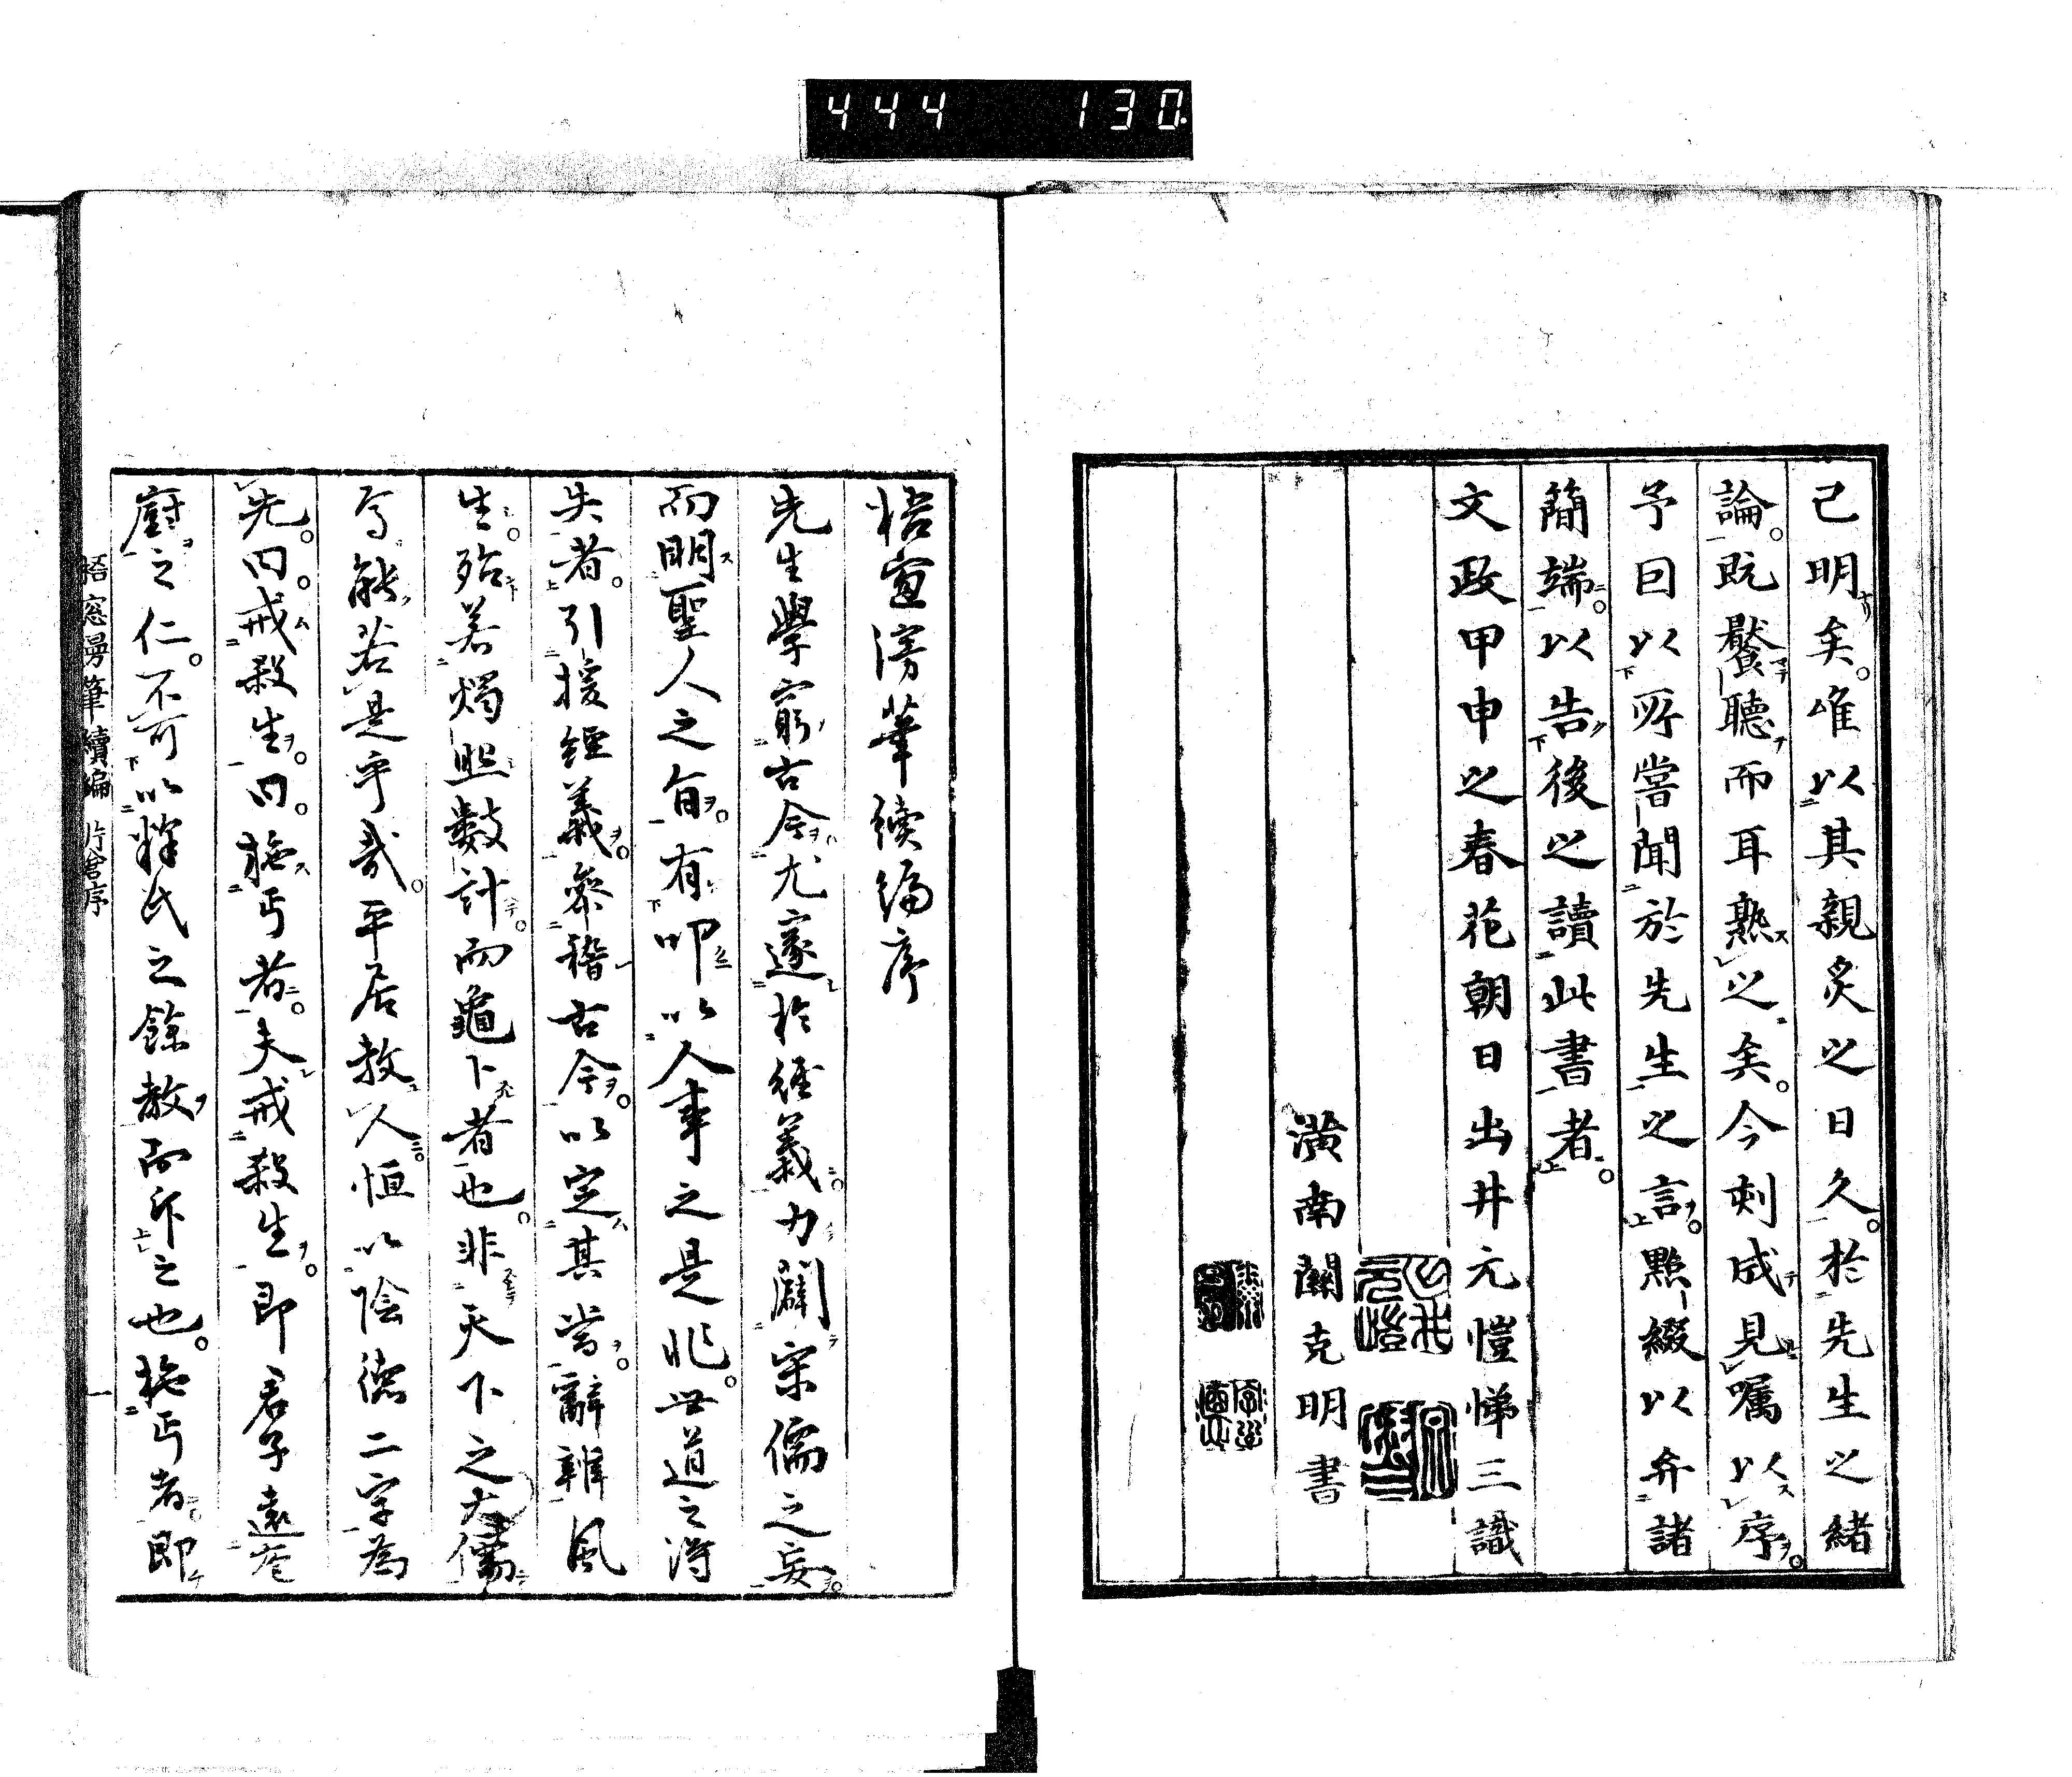 444 130
己明矣。唯以其親炙之日久。於先生之緒
論。既饜聽而耳熟之矣。今刻成見囑以序。
予因以所嘗聞於先生之言。點綴以弁諸
簡端。以告後之讀此書者。
文政甲申之春花朝日出井元愷悌三識
潢南關克明書
梧窗漫筆續編序
先生學窮古今尤邃於經義。力闢宋儒之妄。
而明聖人之旨。有叩以人事之是非。世道之得
失者。引援經義。參稽古今。以定其當。辭辨風
生。殆若燭照數計。而龜卜者也。非天下之大儒
焉能若是乎哉。平居教人。恒以陰德二字為
先。曰。戒殺生。曰。施丐者。夫戒殺生。即君子遠庖
廚之仁。不可以釋氏之餘教而斥之也。施丐者。即
梧窓曼筆續編 片倉序 一